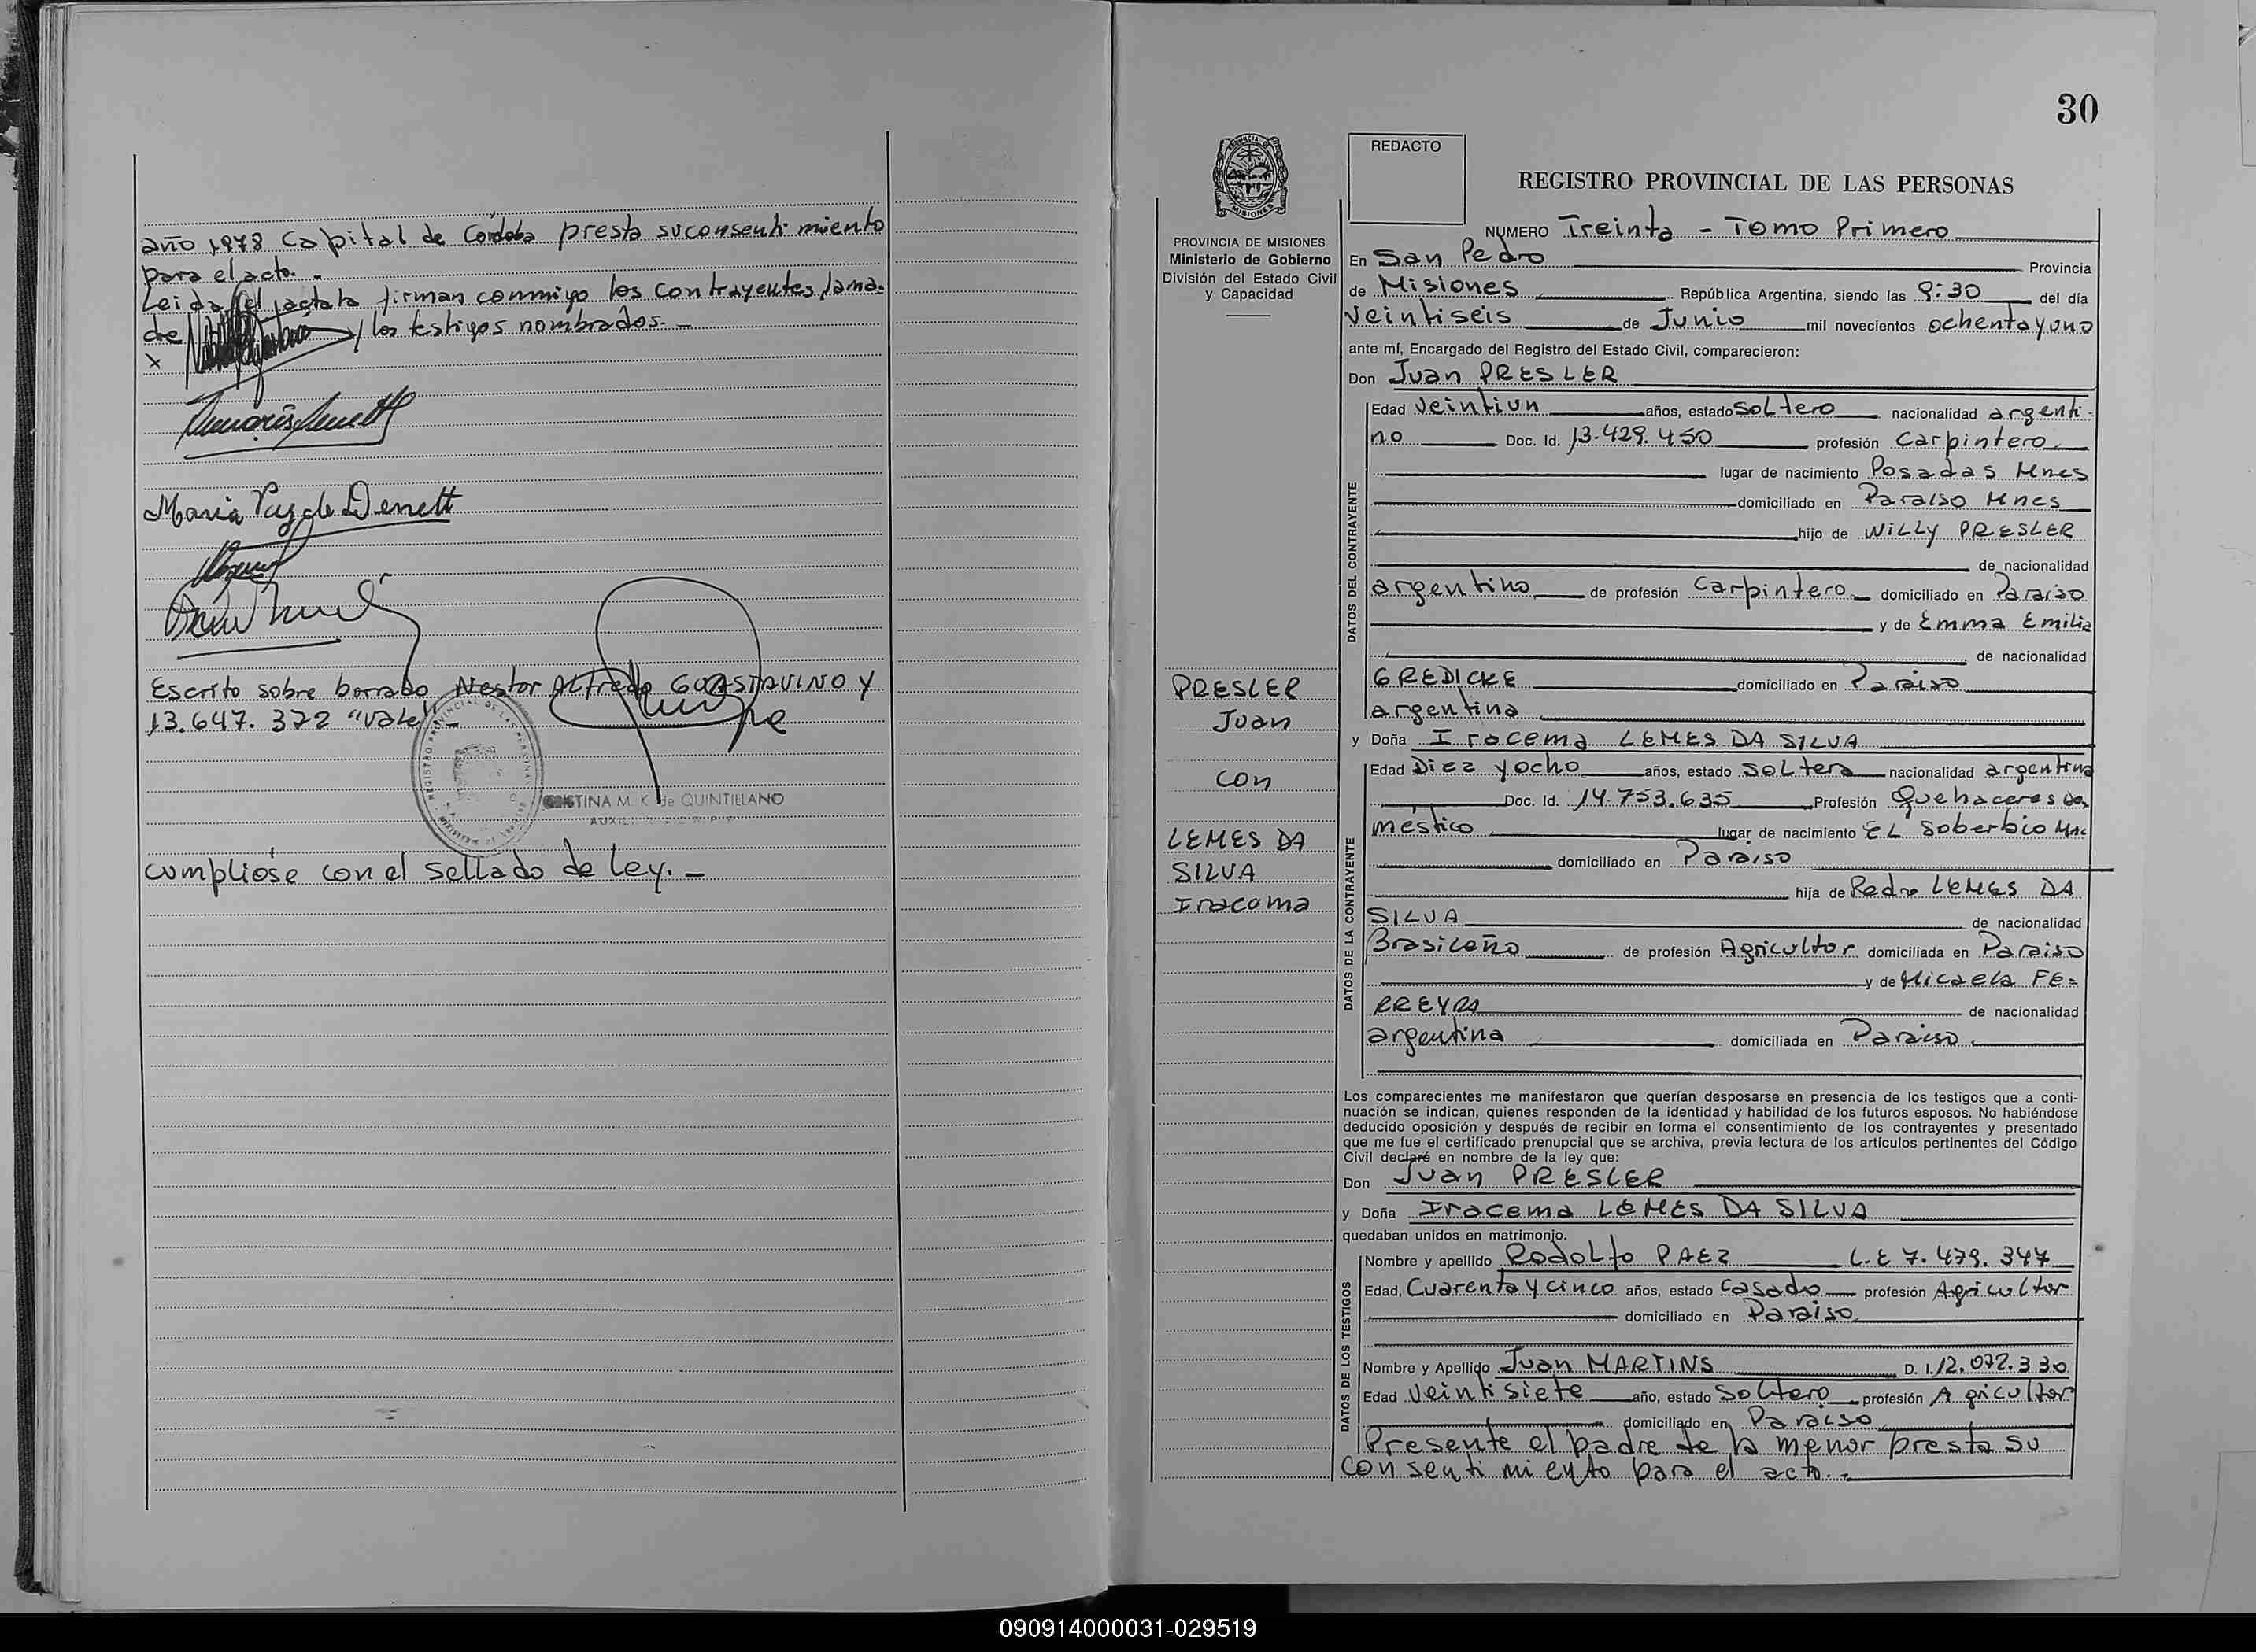 año 1978 Capital de Córdoba presta su consentimiento
para el acto. -
Leida el acta la firman conmigo los contrayentes, la ma-
de y los testigos nombrados. -
x
Maria Paz de Denett
Escrito sobre borrado Nestor Alfredo GUASTAVINO Y
13.647.372 "Vale" -
CRISTINA M. K. de QUINTILLANO
cumplióse con el sellado de Ley. -
30
REDACTO
REGISTRO PROVINCIAL DE LAS PERSONAS
PROVINCIA DE MISIONES
Ministerio de Gobierno
División del Estado Civil
y Capacidad
PRESLER
Juan
con
LEMES DA
SILVA
Iracema
NUMERO Treinta - Tomo Primero
En San Pedro Provincia
de Misiones República Argentina, siendo las 9:30 del día
veintiseis de Junio mil novecientos ochenta y uno
ante mí, Encargado del Registro del Estado Civil, comparecieron:
Don Juan PRESLER
DATOS DEL CONTRAYENTE
Edad Veintiun años, estado Soltero nacionalidad argenti-
no Doc. Id. 13.429.450 profesión Carpintero
lugar de nacimiento Posadas Mnes
domiciliado en Paraiso Mnes
hijo de WILLY PRESLER
de nacionalidad
argentino de profesión Carpintero domiciliado en Paraiso
y de Emma Emilia
de nacionalidad
GREDICKE domiciliado en Paraiso
argentina
y Doña Iracema LEMES DA SILVA
DATOS DE LA CONTRAYENTE
Edad Diez y ocho años, estado Soltera nacionalidad argentina
Doc. Id. 14.753.635 Profesión Quehaceres do-
méstico lugar de nacimiento EL Soberbio Mnes
domiciliado en Paraiso
hija de Pedro LEMES DA
SILVA de nacionalidad
Brasileño de profesión Agricultor domiciliada en Paraiso
y de Micaela FE-
RREYRA de nacionalidad
argentina domiciliada en Paraiso
Los comparecientes me manifestaron que querían desposarse en presencia de los testigos que a conti-
nuación se indican, quienes responden de la identidad y habilidad de los futuros esposos. No habiéndose
deducido oposición y después de recibir en forma el consentimiento de los contrayentes y presentado
que me fue el certificado prenupcial que se archiva, previa lectura de los artículos pertinentes del Código
Civil declaré en nombre de la ley que:
Don Juan PRESLER
y Doña Iracema LEMES DA SILVA
quedaban unidos en matrimonio.
DATOS DE LOS TESTIGOS
Nombre y apellido Rodolfo PAEZ L.E 7.479.347
Edad, Cuarenta y cinco años, estado Casado profesión Agricultor
domiciliado en Paraiso
Nombre y Apellido Juan MARTINS D. I. 12.072.330
Edad Veintisiete año, estado Soltero profesión Agricultor
domiciliado en Paraiso
Presente el padre de la menor presta su
consentimiento para el acto. -
090914000031-029519